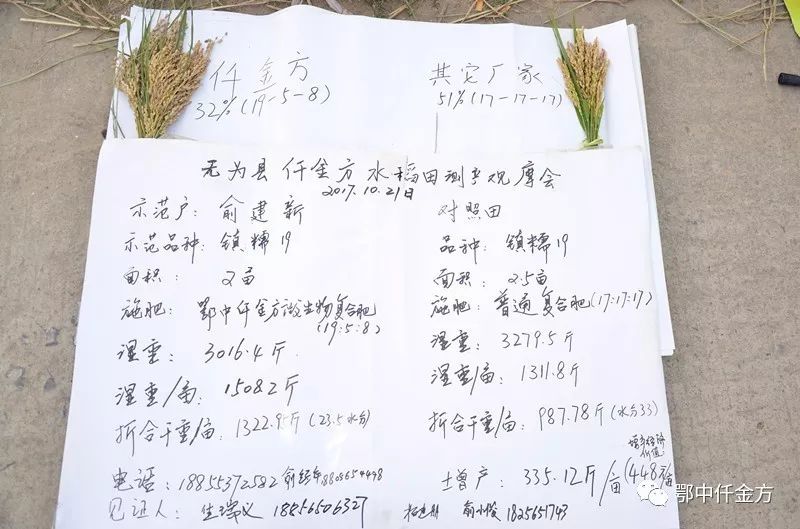 仟金方
32%(19-5-8)
其它厂家
51%(17-17-17)
无为县仟金方水稻田测产观摩会
2017.10.21日
示范户:俞建新
示范品种:镇糯19
面积:2亩
施肥:鄂中仟金方微生物复合肥
(19:5:8)
湿重:3016.4斤
湿重/亩:1508.2斤
折合干重/亩:1322.95斤(23.5水分)
对照田
品种:镇糯19
面积:2.5亩
施肥:普通复合肥(17:17:17)
湿重:3279.5斤
湿重/亩:1311.8斤
折合干重/亩:987.78斤(水分33)
增产:335.12斤/亩(448元/亩
价值
电话:18855372582
见证人:18256506327
18256517143
鄂中仟金方